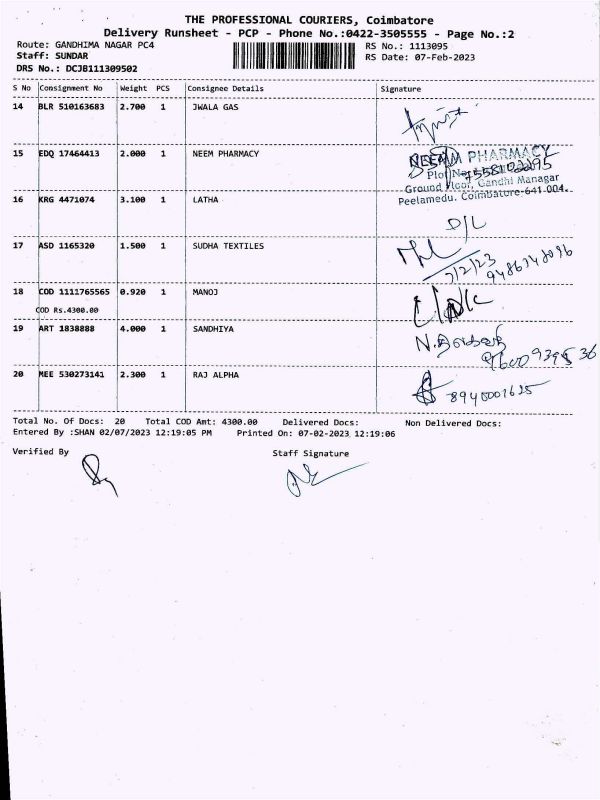 THE PROFESSIONAL COURIERS, Coimbatore
Delivery Runsheet - PCP - Phone No.:0422-3505555 - Page No.:2
Route: GANDHIMA NAGAR PC4
RS No.: 1113095
Staff: SUNDAR
RS Date: 07-Feb-2023
DRS No.: DCJB111309502
S No Consignment No Weight PCS Consignee Details Signature
14 BLR 510163683 2.700 1 JWALA GAS
15 EDQ 17464413 2.000 1 NEEM PHARMACY
NEEM PHARMACY
Ground Floor, Gandhi Managar
Peelamedu. Coimbatore-641 004.
16 KRG 4471074 3.100 1 LATHA
D/L
17 ASD 1165320 1.500 1 SUDHA TEXTILES
7/2/23
18 COD 1111765565 0.920 1 MANOJ
COD Rs.4300.00
19 ART 1838888 4.000 1 SANDHIYA
20 MEE 530273141 2.300 1 RAJ ALPHA
8940001625
Total No. Of Docs: 20 Total COD Amt: 4300.00 Delivered Docs: Non Delivered Docs:
Entered By :SHAN 02/07/2023 12:19:05 PM Printed On: 07-02-2023 12:19:06
Verified By Staff Signature